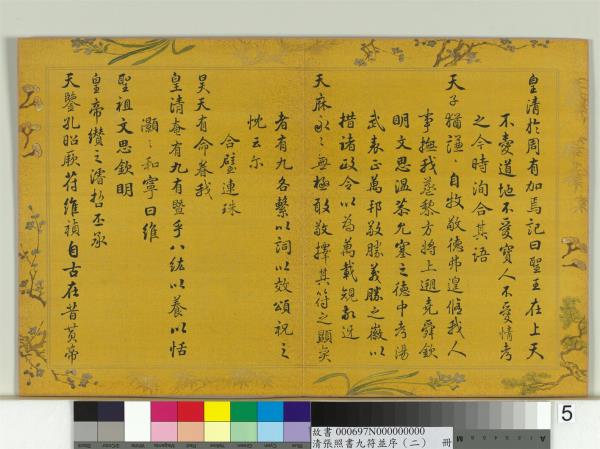 皇清於周有加焉記曰聖王在上天
不愛道地不愛寶人不愛情考
之今時洵合其語
天子猶謙謙自牧敬德弗遑脩我人
事撫我羣黎方將上遡堯舜欽
明文思溫恭允塞之德中考湯
武表正萬邦敬勝義勝之徽以
措諸政令以為萬載規敬迓
天庥永之無極敢敬擇其符之顯奕
者有九各繫以詞以效頌祝之
忱云尔
合璧連珠
昊天有命眷我
皇清奄有九有暨乎八紘以養以恬
灝灝和寧曰維
聖祖文思欽明
皇帝纘之濬哲丕承
天鑒孔昭厥符維禎自古在昔黃帝
故書 000697N000000000
清張照書九符並序（二） 冊
5